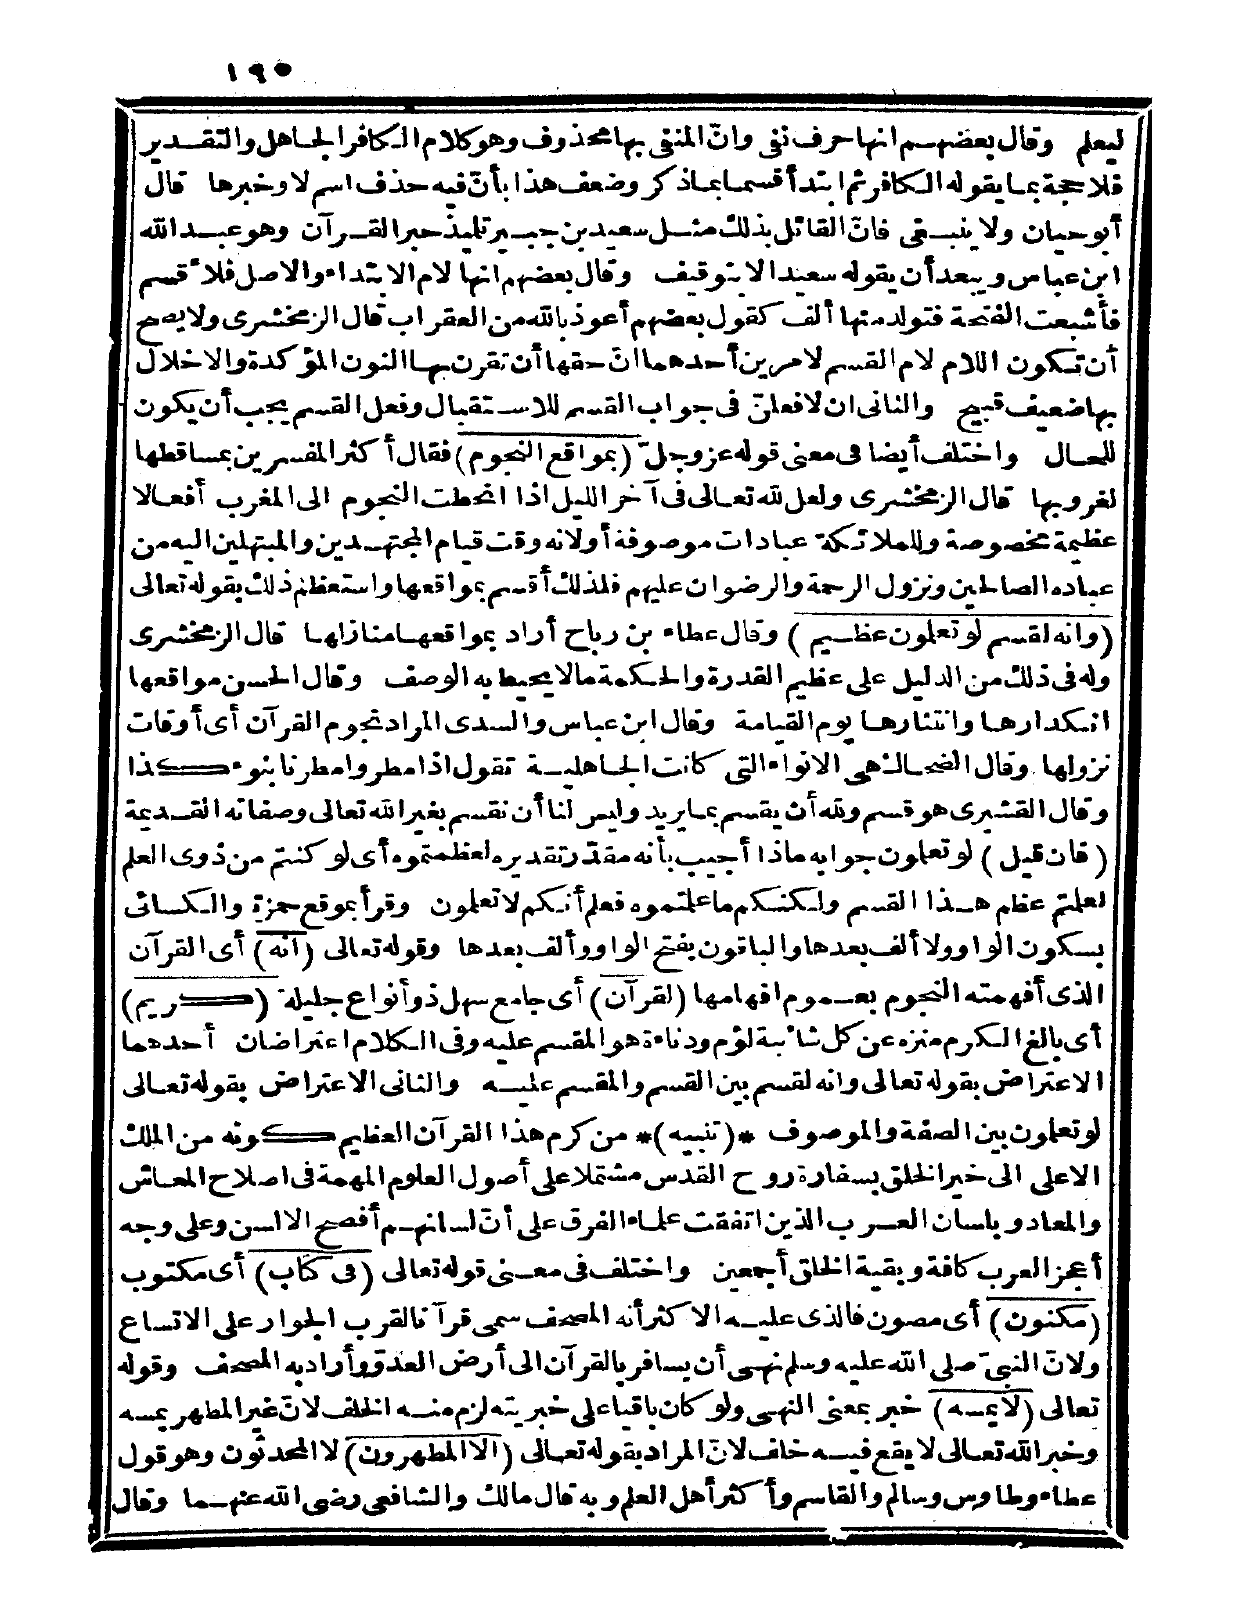 ١٩٠
ليعلم وقال بعضهم انها حرف نفى وانّ المنفى بها محذوف وهو كلام الكافر الجاهل والتقدير
فلا حجة بما يقوله الكافر ثم ابتدأ قسما بماذكر وضعف هذا بأنّ فيه حذف اسم لا وخبرها قال
أبو حيان ولا ينبغى فانّ القائل بذلك مثل سعيد بن جبير تلميذ حبر القرآن وهو عبد الله
ابن عباس ويبعد أن يقوله سعيد الا بتوقيف وقال بعضهم انها لام الابتداء والاصل فلأقسم
فأشبعت الفتحة فتولد منها ألف كقول بعضهم أعوذ بالله من العقراب قال الزمخشرى ولا يصح
أن تكون اللام لام القسم لامرين أحدهما انّ حقها أن تقرن بها النون المؤكدة والاخلال
بها ضعيف قبيح والثانى ان لافعلنّ فى جواب القسم للاستقبال وفعل القسم يجب أن يكون
للحال واختلف أيضا فى معنى قوله عز وجلّ (بمواقع النجوم) فقال أكثر المفسرين بمساقطها
لغروبها قال الزمخشرى ولعل لله تعالى فى آخر الليل اذا انحطت النجوم الى المغرب أفعالا
عظيمة مخصوصة وللملائكة عبادات موصوفة أولانه وقت قيام المجتهدين والمبتهلين اليه من
عباده الصالحين ونزول الرحمة والرضوان عليهم فلذلك أقسم بمواقعها واستعظم ذلك بقوله تعالى
(وانه لقسم لو تعلمون عظيم) وقال عطاء بن رباح أراد بمواقعها منازلها قال الزمخشرى
وله فى ذلك من الدليل على عظيم القدرة والحكمة مالا يحيط به الوصف وقال الحسن مواقعها
انكدارها وانتثارها يوم القيامة وقال ابن عباس والسدى المراد نجوم القرآن أى أوقات
نزولها وقال الضحاك هى الانواء التى كانت الجاهلية تقول اذا مطروا مطرنا بنوء كذا
وقال القشيرى هو قسم ولله أن يقسم بما يريد وليس لنا أن نقسم بغير الله تعالى وصفاته القديمة
(فان قيل) لو تعلمون جوابه ماذا أجيب بأنه مقدّر تقديره لعظمتموه أى لو كنتم من ذوى العلم
لعلتم عظم هذا القسم ولكنكم ما علتموه فعلم أنكم لا تعلمون وقرأ بموقع حمزة والكسائى
بسكون الواو ولا ألف بعدها والباقون بفتح الواو وألف بعدها وقوله تعالى (انه) أى القرآن
الذى أفهمته النجوم بعموم افهامها (لقرآن) أى جامع سهل ذو أنواع جليلة (كريم)
أى بالغ الكرم منزه عن كل شائبة لؤم ودناءة هو المقسم عليه وفى الكلام اعتراضان أحدهما
الاعتراض بقوله تعالى وانه لقسم بين القسم والمقسم عليه والثانى الاعتراض بقوله تعالى
لو تعلمون بين الصفة والموصوف *(تنبيه)* من كرم هذا القرآن العظيم كونه من الملك
الاعلى الى خير الخلق بسفارة روح القدس مشتملا على أصول العلوم المهمة فى اصلاح المعاش
والمعاد وباسان العرب الذين اتفقت علماء الفرق على أنّ لسانهم أفصح الالسن وعلى وجه
أعجز العرب كافة وبقية الخلق أجمعين واختلف فى معنى قوله تعالى (فى كتاب) أى مكتوب
(مكنون) أى مصون فالذى عليه الاكثر أنه المصحف سمى قرآنا لقرب الجوار على الاتساع
ولانّ النبىّ صلى الله عليه وسلم نهى أن يسافر بالقرآن الى أرض العدوّ وأراد به المصحف وقوله
تعالى (لا يمسه) خبر بمعنى النهى ولو كان باقيا على خبريته لزم منه الخلف لانّ غير المطهر يمسه
وخبر الله تعالى لا يقع فيه خلف لانّ المراد بقوله تعالى (الا المطهرون) لا المحدثون وهو قول
عطاء وطاوس وسالم والقاسم وأكثر أهل العلم وبه قال مالك والشافعى رضى الله عنهما وقال